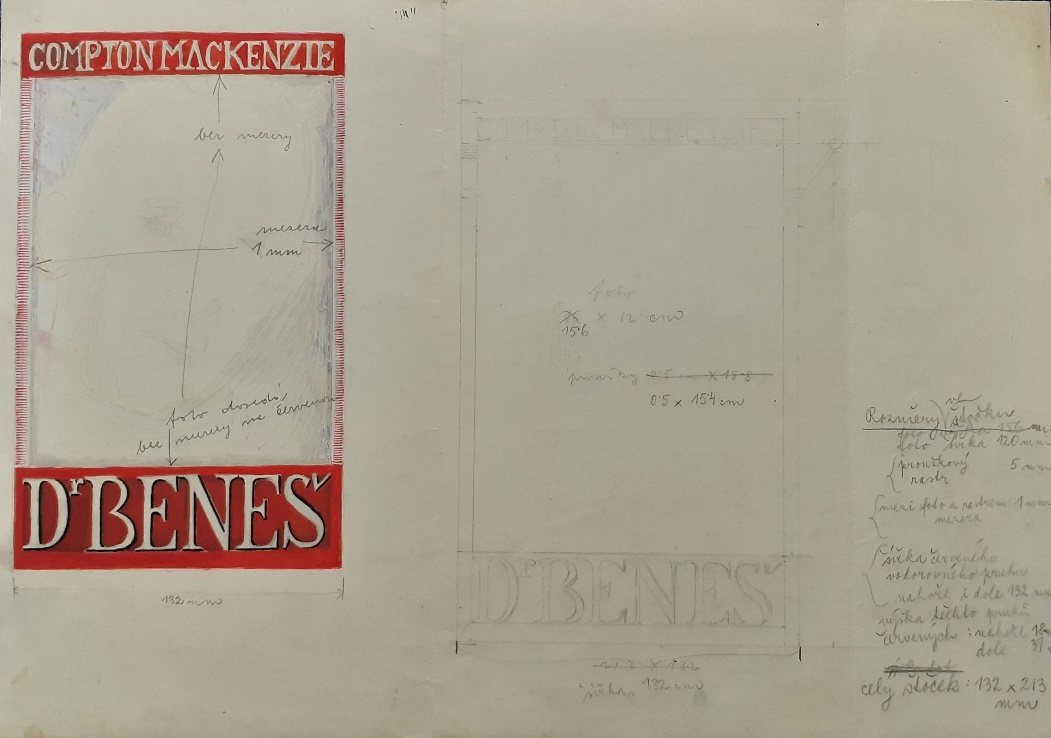 COMPTON MACKENZIE
bez mezery
mezera
1 mm
foto dosedá,
bez mezery na červenou
Dr BENEŠ
132 mm
COMPTON MACKENZIE
foto
x 12 cm
15·6
proužky 0·5 cm x 15·8
0·5 x 15·4 cm
Dr BENEŠ
šířka 132 cm
Rozměry štočku
foto 156 mm
foto šířka 120 mm
proužkový 5 mm
rastr
mezi foto a rastrem 1 mm
mezera
šířka červeného
vodorovného pruhu
nahoře i dole 132 mm
výška těchto pruhů
červených : nahoře
dole
celý štoček : 132 x 213
mm